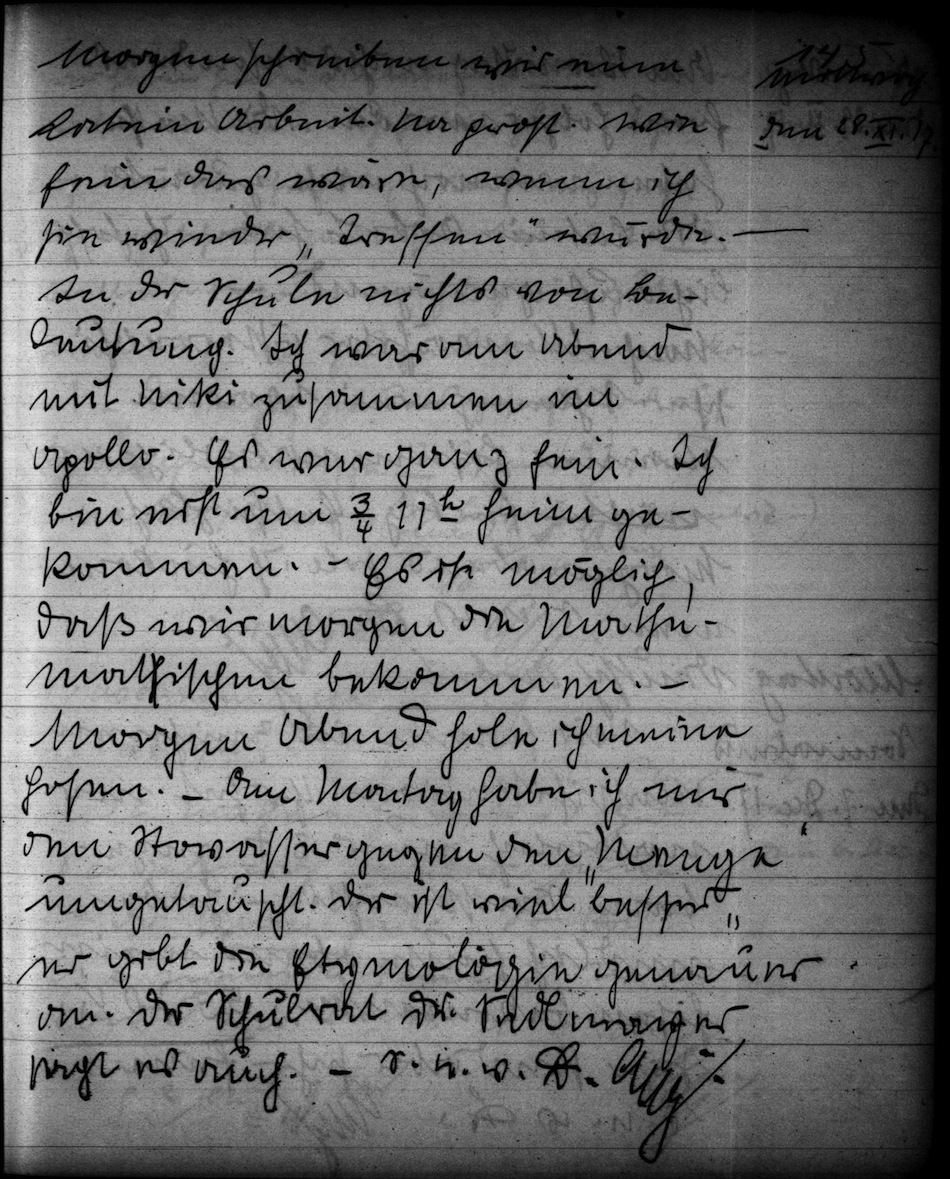 Morgen schreiben wir eine
Latein Arbeit. Na prost. Wie
fein das wäre, wenn ich
sie wieder „treffen“ würde. —
In der Schule nichts von Be-
deutung. Ich war am Abend
mit Niki zusammen im
Apollo. Es war ganz fein. Ich
bin erst um 3/4 11 h heim ge-
kommen. – Es ist möglich,
daß wir morgen die Mathe-
mathischen bekommen. –
Morgen Abend hole ich meine
Hosen. – Am Montag habe ich mir
den Stowasser gegen den „Menge“
umgetauscht. Der ist viel besser„
er gibt die Etymologie genauer
an. Der Schulrat Dr. Sedlmayer
sagt es auch. –
Mittwoch
den 28. XI. 17.